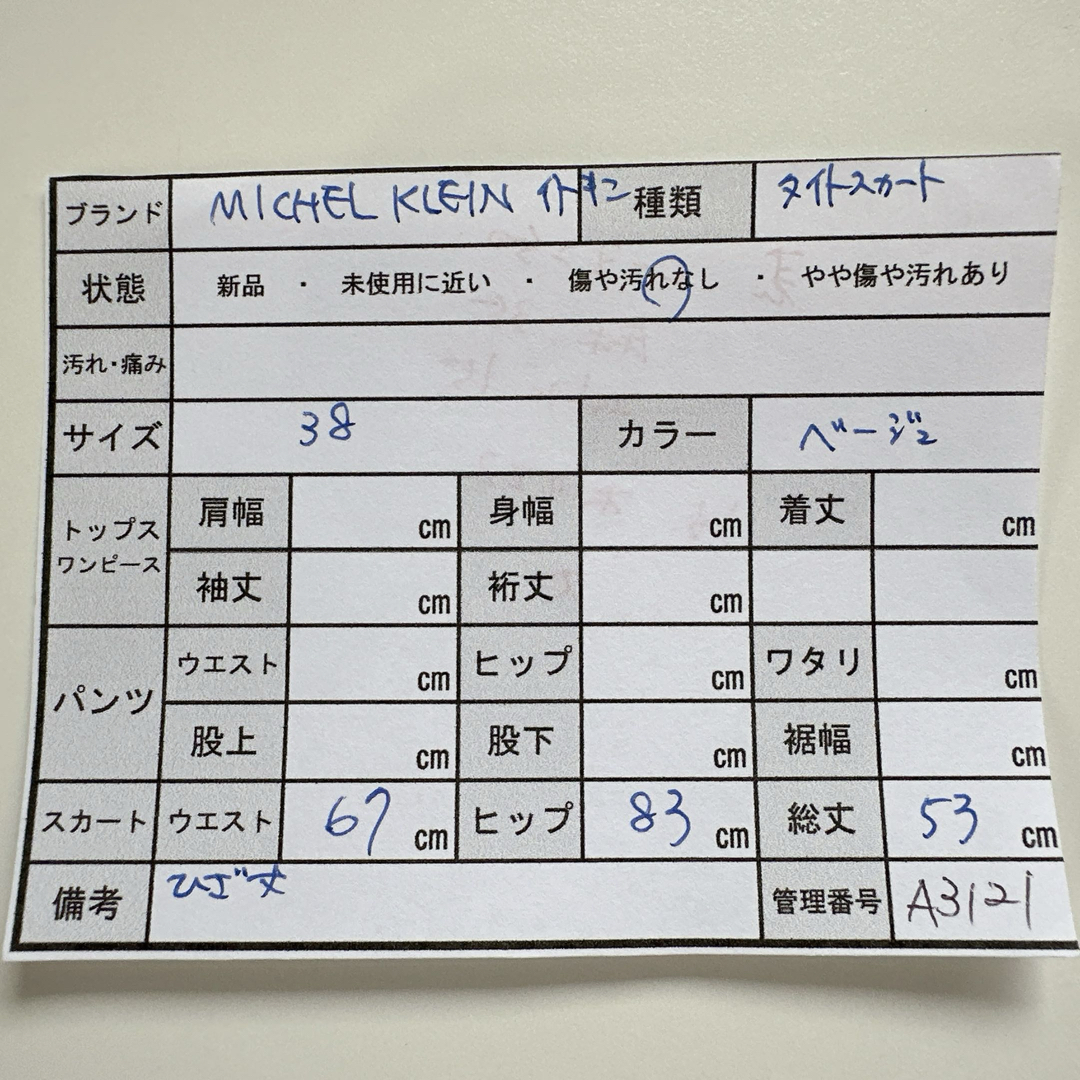 ブランド MICHEL KLEIN イトキン 種類 タイトスカート
状態 新品 ・ 未使用に近い ・ 傷や汚れなし ・ やや傷や汚れあり
汚れ・痛み
サイズ 38 カラー ベージュ
トップス
ワンピース
肩幅 cm 身幅 cm 着丈 cm
袖丈 cm 裄丈 cm
パンツ
ウエスト cm ヒップ cm ワタリ cm
股上 cm 股下 cm 裾幅 cm
スカート ウエスト 67 cm ヒップ 83 cm 総丈 53 cm
備考 ひざ丈 管理番号 A3121